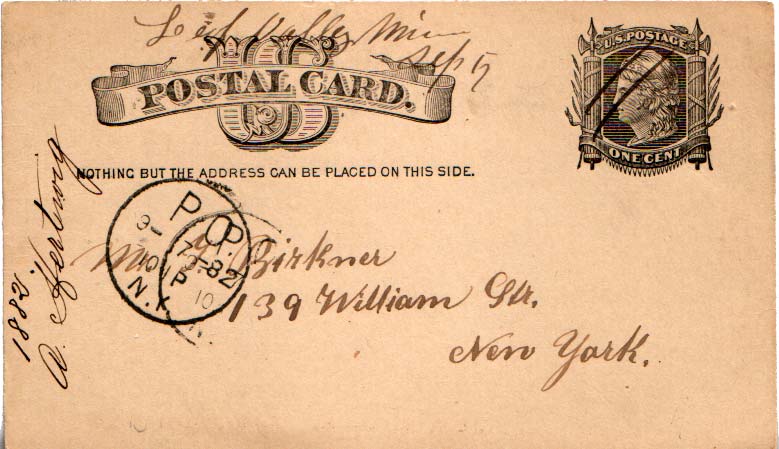 Leaf Valley Minn
Sep 5
U.S. POSTAGE
ONE CENT
US
POSTAL CARD.
NOTHING BUT THE ADDRESS CAN BE PLACED ON THIS SIDE.
P.O.
9-7-82
10 P
N.Y.
P
10
Mr Birkner
139 William Str.
New York.
1882.
A. Hertwig